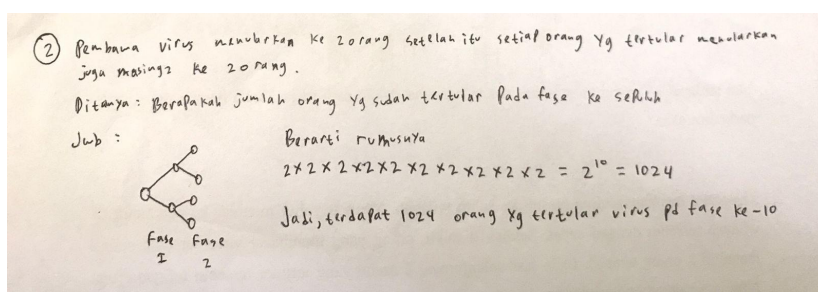 2 Pembawa virus menularkan ke 2 orang setelah itu setiap orang yg tertular menularkan
juga masing2 ke 2 orang.
Ditanya : Berapakah jumlah orang yg sudah tertular pada fase ke sepuluh
Jwb :
Berarti rumusnya
2 x 2 x 2 x 2 x 2 x 2 x 2 x 2 x 2 x 2 = 2¹⁰ = 1024
Jadi, terdapat 1024 orang yg tertular virus pd fase ke-10
Fase Fase
I 2